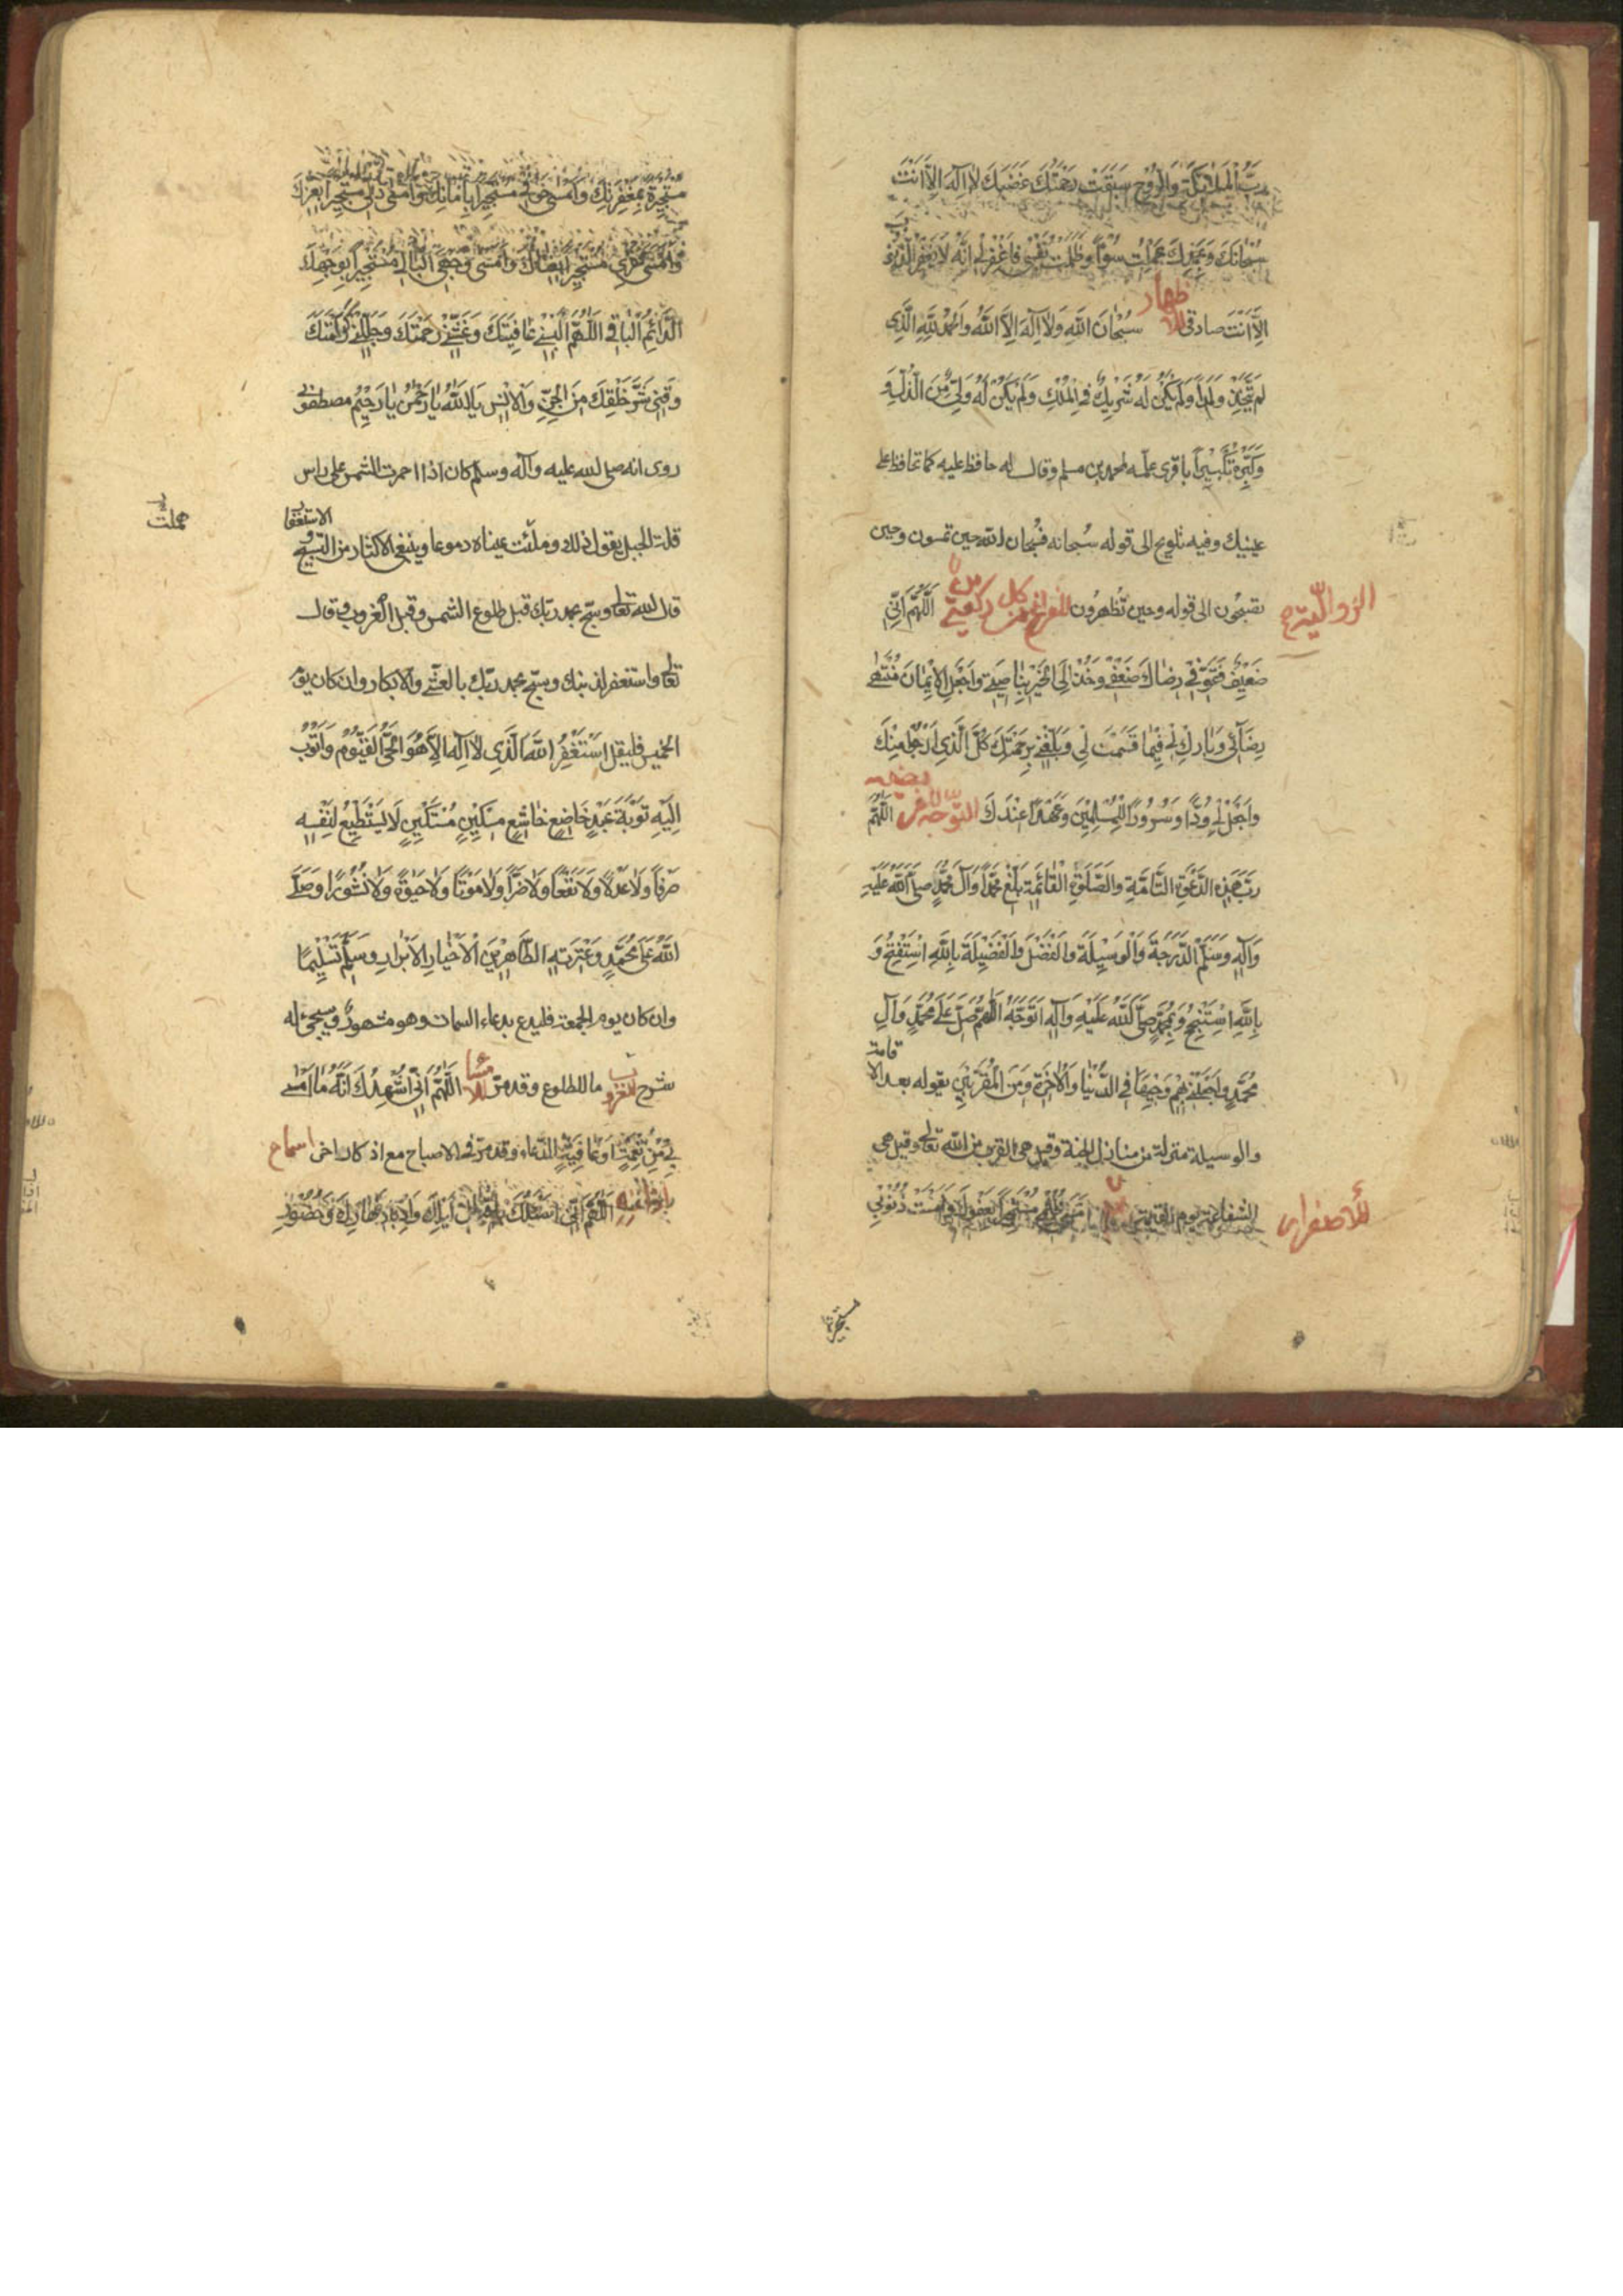 رَبُّ الْمَلٰائِكَةِ وَالرُّوحِ سَبَقَتْ رَحْمَتُكَ غَضَبَكَ لاٰ اِلٰهَ اِلاّٰ اَنْتَ
سُبْحٰانَكَ وَبِحَمْدِكَ عَمِلْتُ سُوءًا وَظَلَمْتُ نَفْسِي فَاغْفِرْ لِي اِنَّهُ لاٰ يَغْفِرُ الذُّنُوبَ
اِلاّٰ اَنْتَ صادقى للاظهار سُبْحٰانَ اللّٰهِ وَلاٰ اِلٰهَ اِلاَّ اللّٰهُ وَالْحَمْدُ لِلّٰهِ الَّذِي
لَمْ يَتَّخِذْ وَلَدًا وَلَمْ يَكُنْ لَهُ شَرِيكٌ فِي الْمُلْكِ وَلَمْ يَكُنْ لَهُ وَلِيٌّ مِنَ الذُّلِّ وَ
وَكَبِّرْهُ تَكْبِيرًا باقرى علمه لمحمد بن مسلم وقال له حافظ عليه كما تحافظ على
عينيك وفيه تلويح الى قوله سبحانه فسبحان الله حين تمسون وحين
تصبحون الى قوله وحين تظهرون للفراغ من كل ركعتى من اَللّٰهُمَّ اِنِّي
الزوالية
ضَعِيفٌ فَقَوِّ فِي رِضٰاكَ ضَعْفِي وَخُذْ اِلَى الْخَيْرِ بِنٰاصِيَتِي وَاجْعَلِ الْاِيمٰانَ مُنْتَهٰى
رِضٰائِي وَبٰارِكْ لِي فِيمٰا قَسَمْتَ لِي وَبَلِّغْنِي بِرَحْمَتِكَ كُلَّ الَّذِي اَرْجُو مِنْكَ
وَاجْعَلْ لِي وُدًّا وَسُرُورًا لِلْمُسْلِمِينَ وَعَهْدًا عِنْدَكَ للتوجه لافرضيه اَللّٰهُمَّ
رَبَّ هٰذِهِ الدَّعْوَةِ التَّامَّةِ وَالصَّلٰوةِ الْقٰائِمَةِ بَلِّغْ مُحَمَّدًا وَآلَ مُحَمَّدٍ صَلَّى اللّٰهُ عَلَيْهِ
وَآلِهِ وَسَلَّمَ الدَّرَجَةَ وَالْوَسِيلَةَ وَالْفَضْلَ وَالْفَضِيلَةَ بِاللّٰهِ اَسْتَفْتِحُ وَ
بِاللّٰهِ اَسْتَنْجِحُ وَبِمُحَمَّدٍ صَلَّى اللّٰهُ عَلَيْهِ وَآلِهِ اَتَوَجَّهُ اَللّٰهُمَّ صَلِّ عَلٰى مُحَمَّدٍ وَآلِ
مُحَمَّدٍ وَاجْعَلْنِي بِهِمْ وَجِيهًا فِي الدُّنْيٰا وَالْاٰخِرَةِ وَمِنَ الْمُقَرَّبِينَ يقوله بعد الاقامة
والوسيلة منزلة من منازل الجنة وقيل هى القرب من الله تعالى وقيل هى
الشفاعة يوم القيمة ظُلْمِي مُسْتَجِيرًا بِعَفْوِكَ وَاَمْسَتْ ذُنُوبِي
للاصفرار
مستجيرة
مُسْتَجِيرَةً بِمَغْفِرَتِكَ وَاَمْسٰى خَوْفِي مُسْتَجِيرًا بِاَمٰانِكَ وَاَمْسٰى ذُلِّي مُسْتَجِيرًا بِعِزِّكَ
وَاَمْسٰى فَقْرِي مُسْتَجِيرًا بِغِنٰاكَ وَاَمْسٰى وَجْهِيَ الْبٰالِي مُسْتَجِيرًا بِوَجْهِكَ
الدّٰائِمِ الْبٰاقِي اَللّٰهُمَّ اَلْبِسْنِي عٰافِيَتَكَ وَغَشِّنِي رَحْمَتَكَ وَجَلِّلْنِي كَرٰامَتَكَ
وَقِنِي شَرَّ خَلْقِكَ مِنَ الْجِنِّ وَالْاِنْسِ يٰا اَللّٰهُ يٰا رَحْمٰنُ يٰا رَحِيمُ مصطفوى
روى انه صلى الله عليه وآله وسلم كان اذا احمرت الشمس على راس
قلة الجبل يقول ذلك وملئت عيناه دموعا وينبغى الاكثار من التسبيح و الاستغفا
قال الله تعالى وسبح بحمد ربك قبل طلوع الشمس وقبل الغروب وقال
تعالى واستغفر لذنبك وسبح بحمد ربك بالعشى والابكار وان كان يوم
الخميس فليقل اَسْتَغْفِرُ اللّٰهَ الَّذِي لاٰ اِلٰهَ اِلاّٰ هُوَ الْحَيُّ الْقَيُّومُ وَاَتُوبُ
اِلَيْهِ تَوْبَةَ عَبْدٍ خٰاضِعٍ خٰاشِعٍ مِسْكِينٍ مُسْتَكِينٍ لاٰ يَسْتَطِيعُ لِنَفْسِهِ
صَرْفًا وَلاٰ عَدْلاً وَلاٰ نَفْعًا وَلاٰ ضَرًّا وَلاٰ مَوْتًا وَلاٰ حَيٰوةً وَلاٰ نُشُورًا وَصَلَّى
اللّٰهُ عَلٰى مُحَمَّدٍ وَعِتْرَتِهِ الطَّاهِرِينَ الْاَخْيٰارِ الْاَبْرٰارِ وَسَلَّمَ تَسْلِيمًا
وان كان يوم الجمعة فليدع بدعاء السمات وهو مشهور وسيجئ له
شرح للغروب ما للطلوع وقد مر للامساء اَللّٰهُمَّ اِنِّي اُشْهِدُكَ اَنَّهُ مٰا اَمْسٰى
بِي مِنْ نِعْمَةٍ اَوْ عٰافِيَةٍ الدعاء وقد مر فى الاصباح مع اذكار اخر
اَللّٰهُمَّ اِنِّي اَسْئَلُكَ بِاِقْبٰالِ لَيْلِكَ وَاِدْبٰارِ نَهٰارِكَ وَحُضُورِ